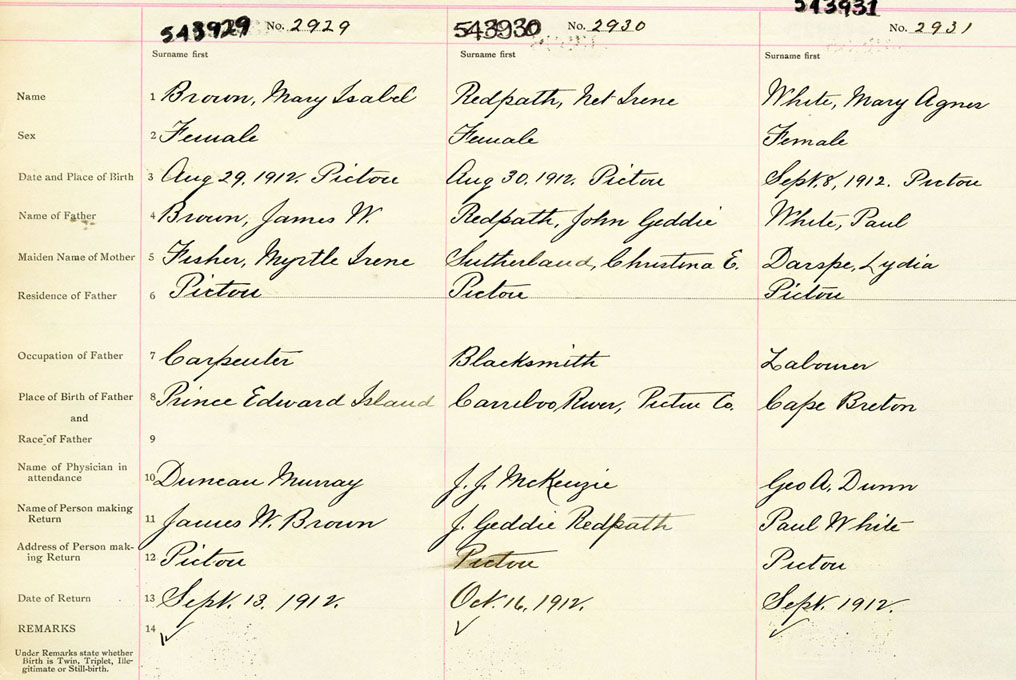 543929 No. 2929 543930 No. 2930 543931 No. 2931
Surname first Surname first Surname first
Name 1 Brown, Mary Isabel Redpath, Net Irene White, Mary Agnes
Sex 2 Female Female Female
Date and Place of Birth 3 Aug 29, 1912. Pictou Aug 30, 1912. Pictou Sept. 8, 1912. Pictou
Name of Father 4 Brown, James W. Redpath, John Geddie White, Paul
Maiden Name of Mother 5 Fisher, Myrtle Irene Sutherland, Christina E. Darspe, Lydia
Residence of Father 6 Pictou Pictou Pictou
Occupation of Father 7 Carpenter Blacksmith Labourer
Place of Birth of Father 8 Prince Edward Island Carreboo River, Pictou Co. Cape Breton
and
Race of Father 9
Name of Physician in
attendance 10 Duncan Murray J. J. McKenzie Geo A. Dunn
Name of Person making
Return 11 James W. Brown J. Geddie Redpath Paul White
Address of Person mak-
ing Return 12 Pictou Pictou Pictou
Date of Return 13 Sept. 13, 1912. Oct. 16, 1912. Sept. 1912.
REMARKS 14
Under Remarks state whether
Birth is Twin, Triplet, Ille-
gitimate or Still-birth.